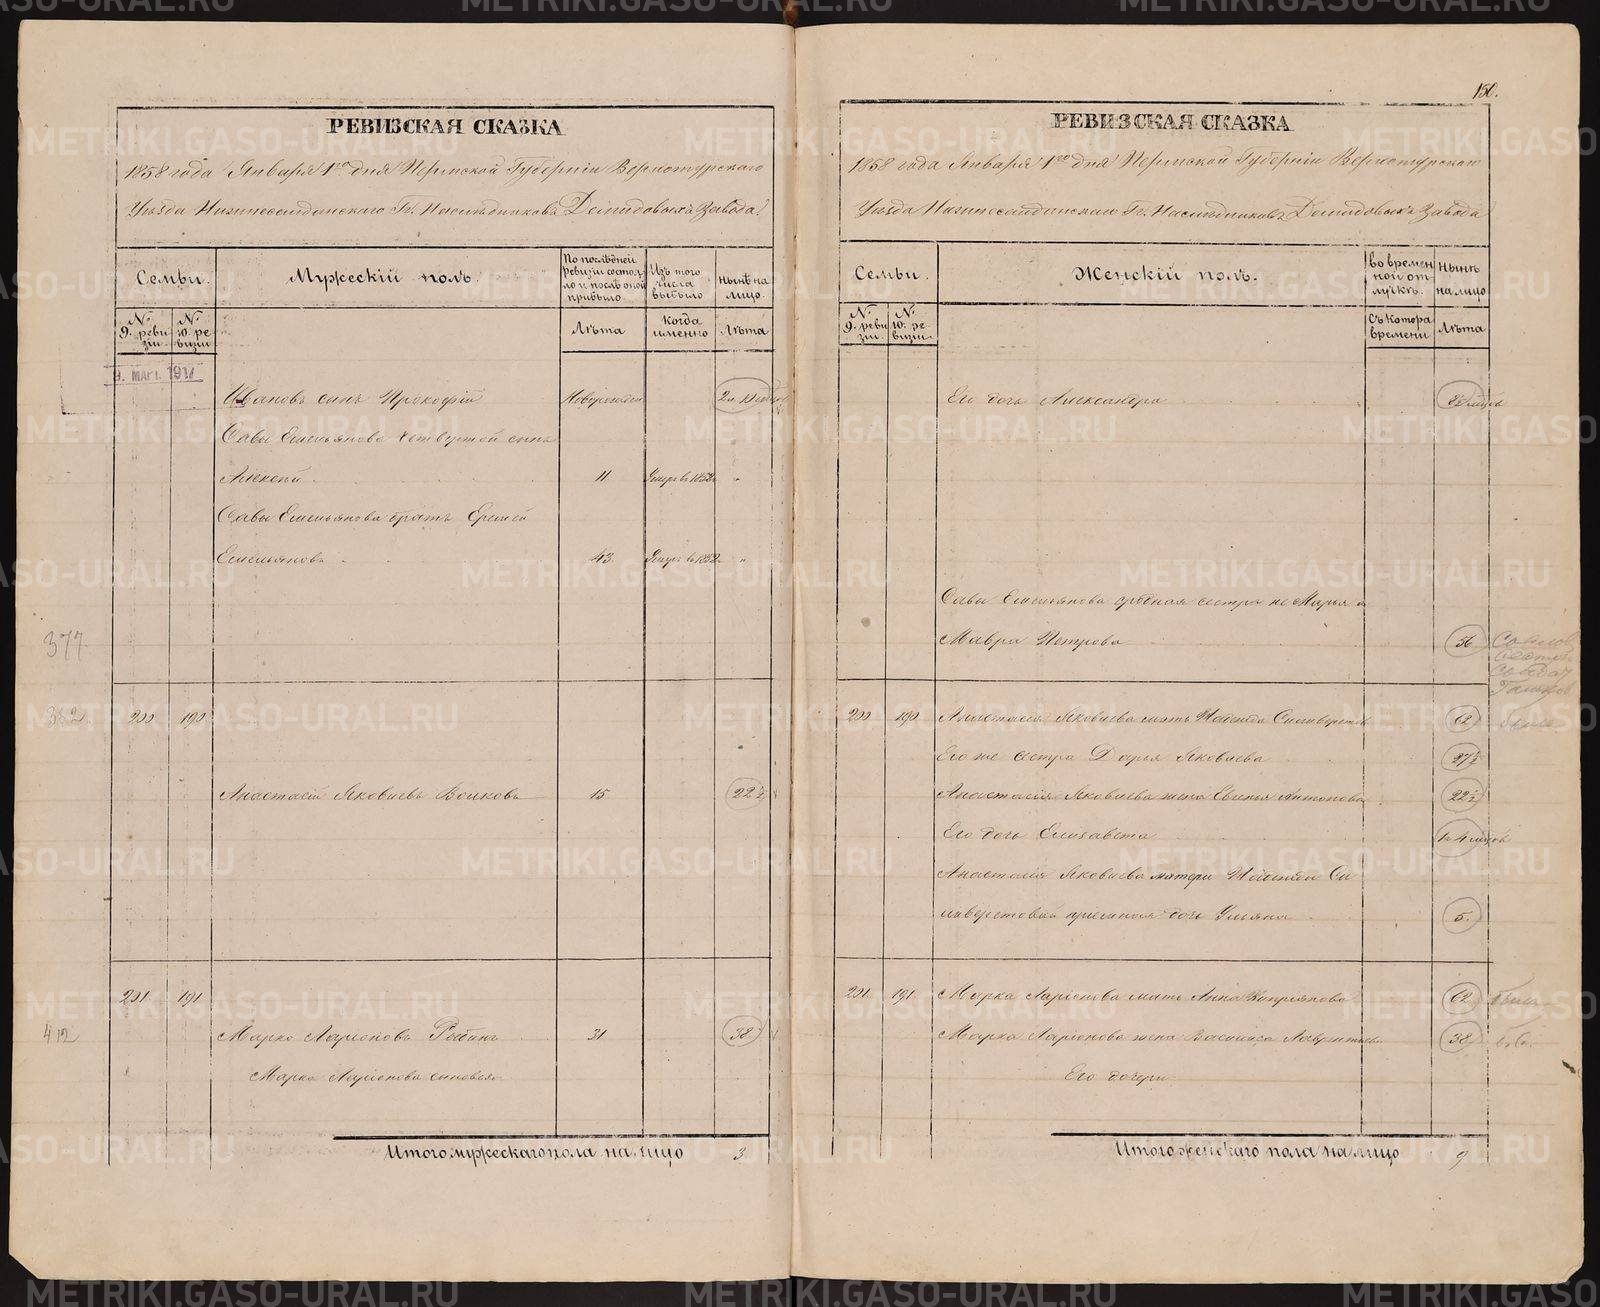 РЕВИЗСКАЯ СКАЗКА
1858 года Января 1го дня Пермской Губерніи Верхотурскаго
Уѣзда Нижнесалдинскаго Гг. Наслѣдниковъ Демидовыхъ Завода.
Семьи.
Мужескій полъ.
По послѣдней ревизіи состояло и послѣ оной прибыло
Изъ того числа выбыло
Нынѣ на лицо.
№ 9. ревизіи
№ 10. ревизіи
Лѣта
Когда именно
Лѣта
9. МАРТ. 1917
Ивановъ сынъ Прокофій
Новорожден
Савы Емельянова четвертой сынъ
Алексей
11
Умеръ в 1852
Савы Емельянова братъ Еремей
Емельяновъ
43.
Умеръ в 1852
377
352
200
190
Анастасій Яковлевъ Волковъ
15
22½
201.
191
412
Марко Ларіоновъ Рыбинъ
31
38
Марка Ларіонова сыновья
Итого мужескаго пола на лицо 3
150.
РЕВИЗСКАЯ СКАЗКА
1858 года Января 1го дня Пермской Губерніи Верхотурскаго
Уѣзда Нижнесалдинскаго Гг. Наслѣдниковъ Демидовыхъ Завода
Семьи.
Женскій полъ.
Во временной отлучкѣ.
Нынѣ на лицо
№ 9. ревизіи
№ 10. ревизіи
Съ котора времени
Лѣта
Его дочь Александра
Савы Емельянова сродная сестра не Марья а
Мавра Петрова
56
200
190
Анастасія Яковлева мать Наталья Сильверстов
62
Его же сестра Дарья Яковлева
27½
Анастасія Яковлева жена Евгенья Антонова
22½
Его дочь Елизавета
1 4 мѣсов
Анастасія Яковлева матери Натальи Си
льверстовой приемная дочь Ульяна
5.
201.
191.
Марка Ларіонова мать Анна Купріянова
62
Марка Ларіонова жена Василиса Лаврентьев
38
Его дочери
Итого женскаго пола на лицо 9
METRIKI.GASO-URAL.RU